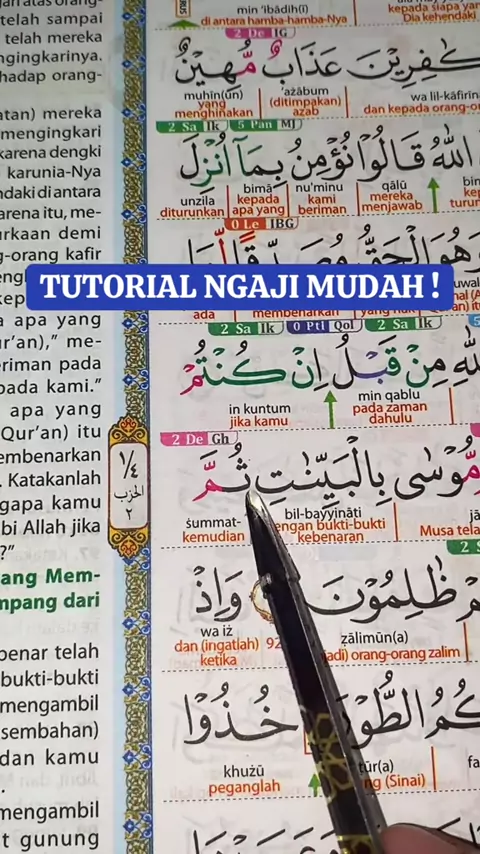 telah sampai
telah mereka
ngingkarinya.
hadap orang-
atan) mereka
mengingkari
karena dengki
karunia-Nya
ndaki diantara
arena itu, me-
urkaan demi
g-orang kafir
apa yang
ur'an)," me-
eriman pada
pada kami."
apa yang
Qur'an) itu
embenarkan
. Katakanlah
ngapa kamu
bi Allah jika
?"
ang Mem-
mpang dari
benar telah
bukti-bukti
mengambil
sembahan)
dan kamu
mengambil
t gunung
١/٤
الحزب
٢
min 'ibādih(ī)
di antara hamba-hamba-Nya
kepada siapa ya
Dia kehendaki
2 De IG
كٰفِرِيْنَ عَذَابٌ مُّهِيْنٌ
muhīn(un) 'ażābum wa lil-kāfirīn
yang menghinakan (ditimpakan) azab dan kepada orang-o
2 Sa Ik 5 Pan MJ
اللّٰهُ قَالُوْا نُؤْمِنُ بِمَآ اُنْزِلَ
unzila bimā nu'minu qālū
diturunkan kepada apa yang kami beriman mereka menjawab
0 Le IBG
وَهُوَ الْحَقُّ
TUTORIAL NGAJI MUDAH !
ada membenarkan
2 Sa Ik 0 Ptl Qol 2 Sa Ik
اللّٰهِ مِنْ قَبْلُ اِنْ كُنْتُمْ
in kuntum min qablu
jika kamu pada zaman dahulu
2 De Gh
مُّوْسٰى بِالْبَيِّنٰتِ ثُمَّ
ṡummat- bil-bayyināti
kemudian engan bukti-bukti kebenaran Musa tela
ظٰلِمُوْنَ وَاِذْ
wa iż ẓālimūn(a)
dan (ingatlah) ketika 92 adi) orang-orang zalim
كُمُ الطُّوْرَ خُذُوْا
khużū ṭūr(a)
peganglah ng (Sinai)